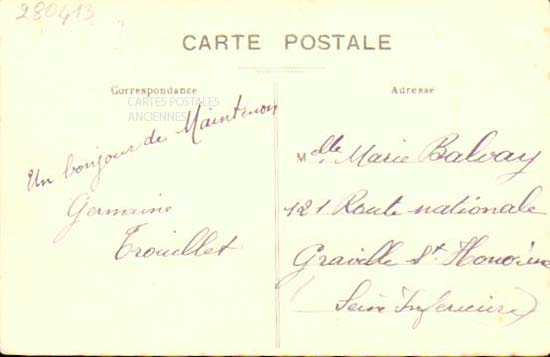 280413
CARTE POSTALE
Correspondance
CARTES POSTALES
ANCIENNES
Un bonjour de Maintenon
Germaine
Trouillet
Adresse
Mdlle Marie Balvay
121 Route nationale
Graville St Honorine
(Seine Inferieure)